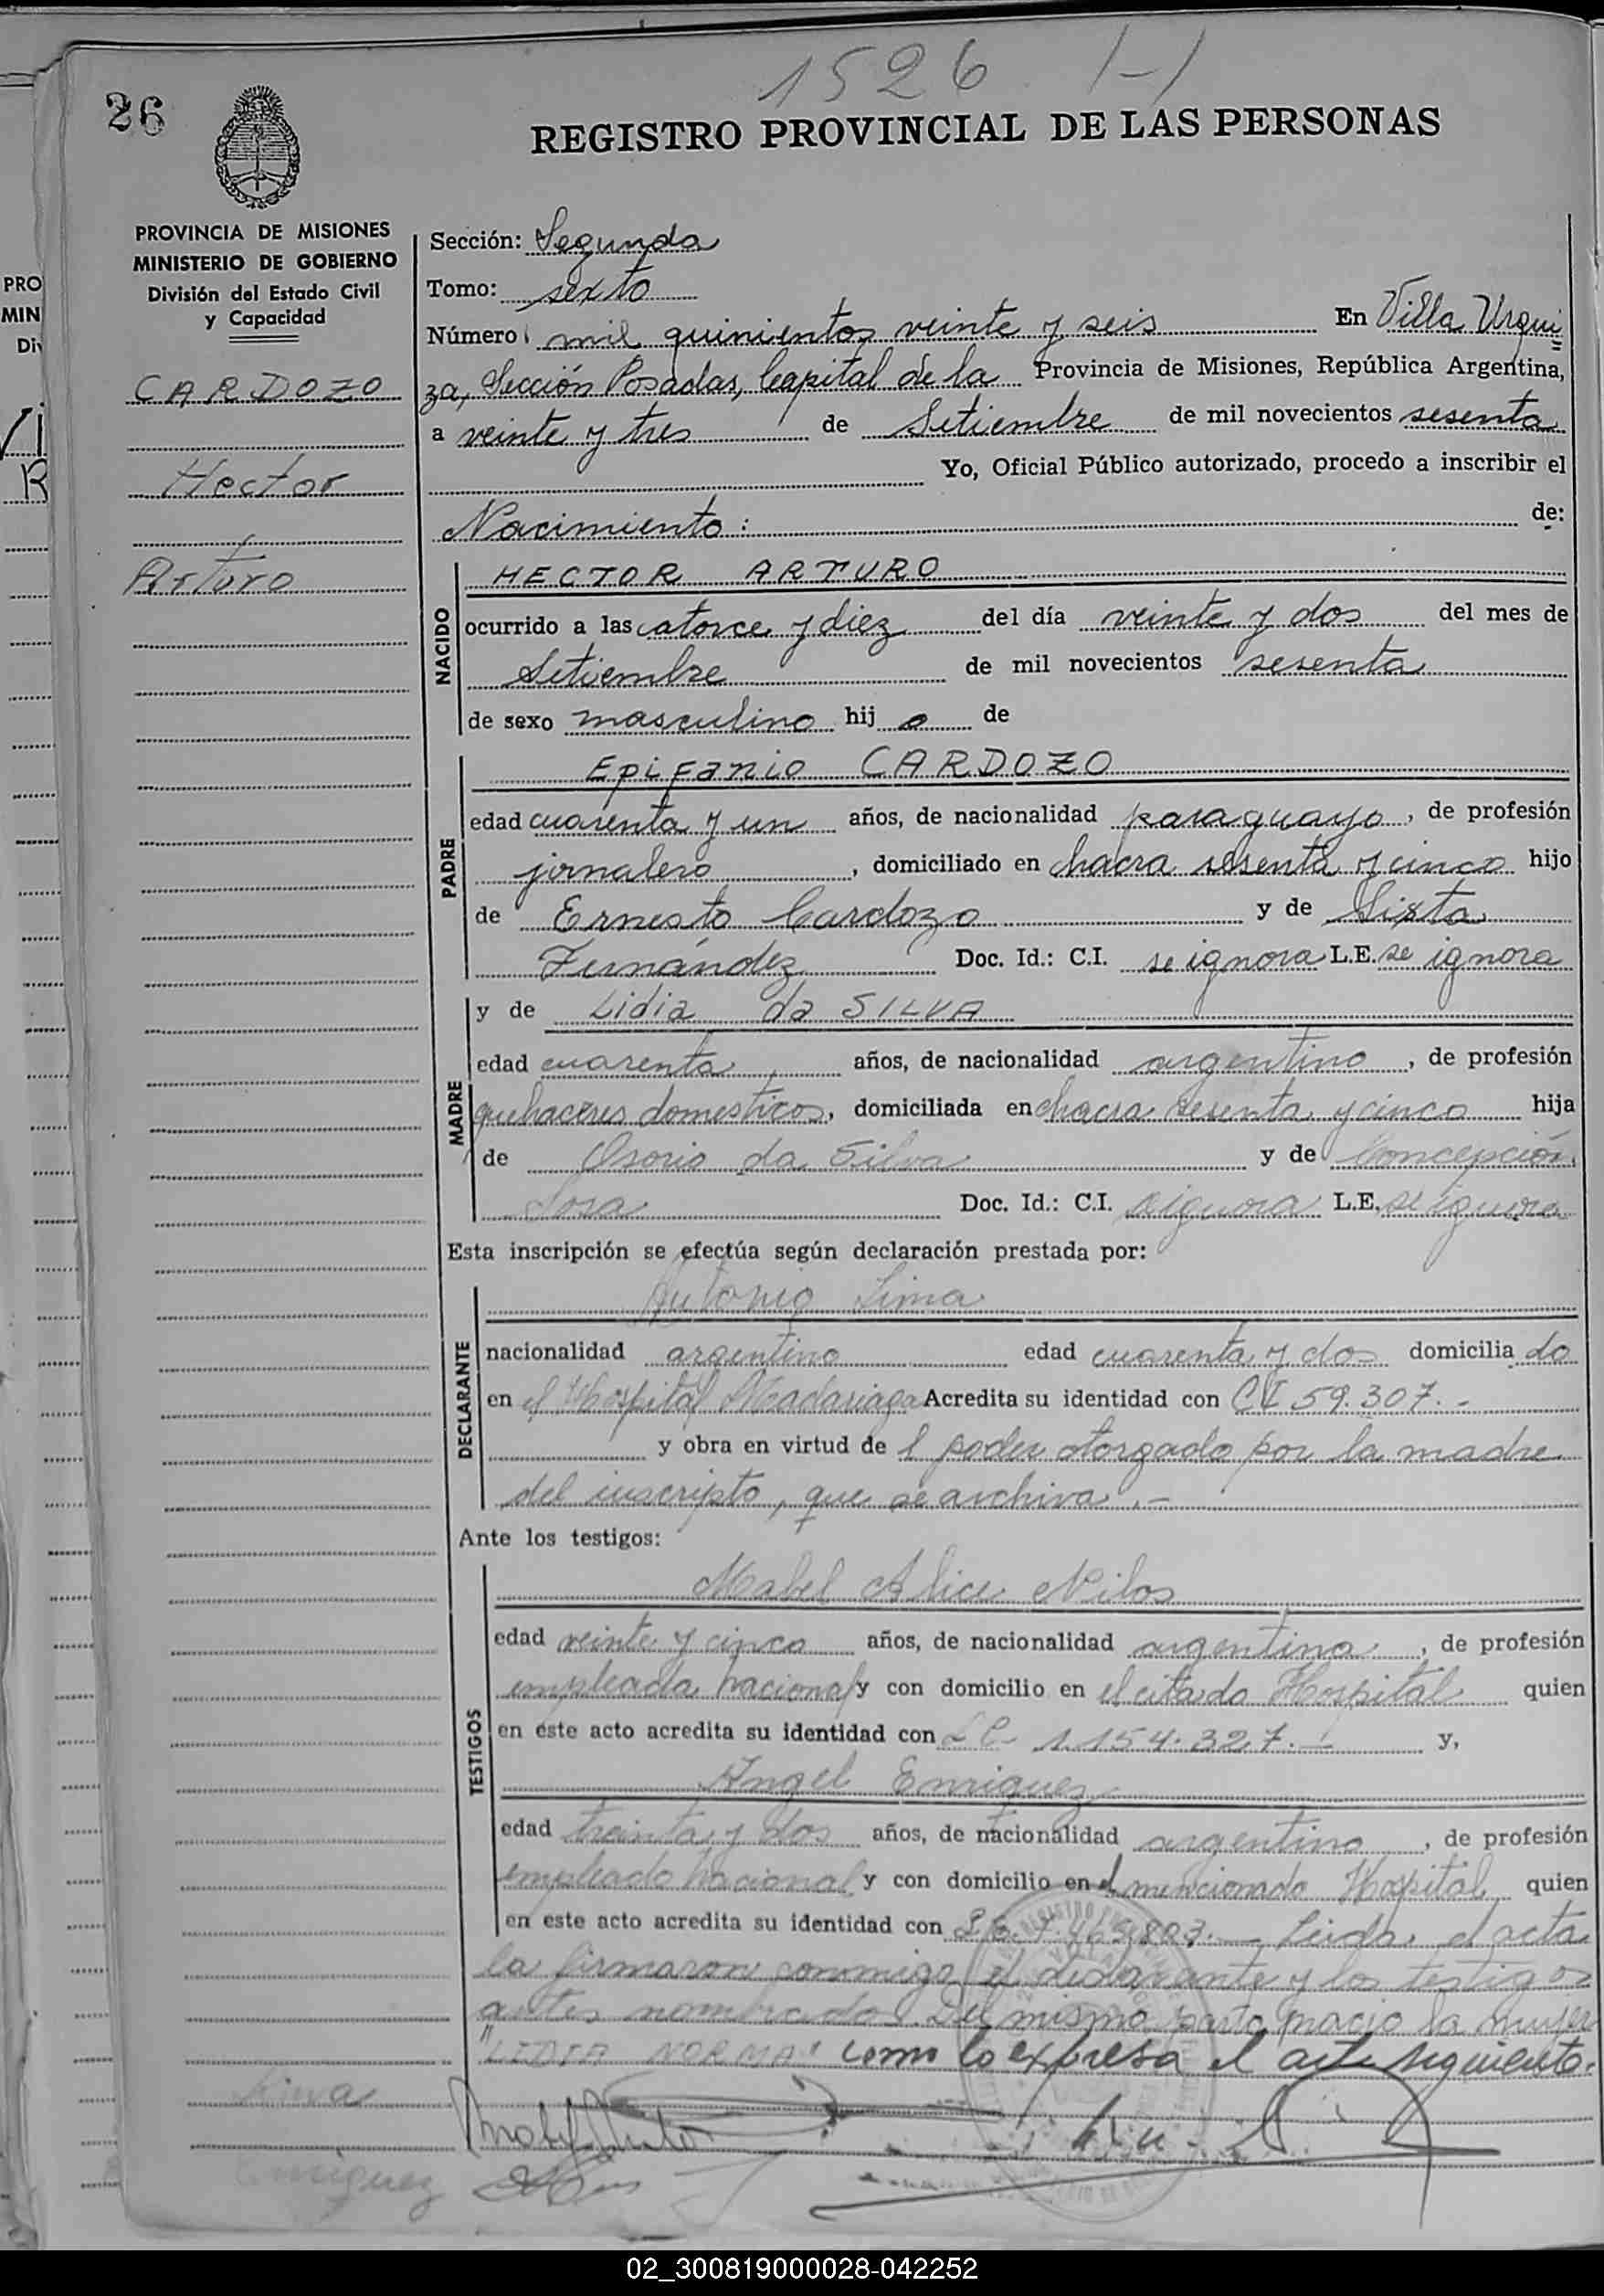 1526 1-1
26
REGISTRO PROVINCIAL DE LAS PERSONAS
PROVINCIA DE MISIONES
MINISTERIO DE GOBIERNO
División del Estado Civil
y Capacidad
CARDOZO
Hector
Arturo
Sección: Segunda
Tomo: sexto
Número: mil quinientos veinte y seis En Villa Urqui=
za, Sección Posadas, Capital de la Provincia de Misiones, República Argentina,
a veinte y tres de Setiembre de mil novecientos sesenta
Yo, Oficial Público autorizado, procedo a inscribir el
Nacimiento: de:
NACIDO
HECTOR ARTURO
ocurrido a las catorce y diez del día veinte y dos del mes de
Setiembre de mil novecientos sesenta
de sexo masculino hijo de
PADRE
Epifanio CARDOZO
edad cuarenta y un años, de nacionalidad paraguayo, de profesión
jornalero, domiciliado en chacra sesenta y cinco hijo
de Ernesto Cardozo y de Sixta
Fernández Doc. Id.: C.I. se ignora L.E. se ignora
MADRE
y de Lidia da SILVA
edad cuarenta años, de nacionalidad argentina, de profesión
quehaceres domesticos, domiciliada en chacra sesenta y cinco hija
de Osorio da Silva y de Concepción
Sosa Doc. Id.: C.I. se ignora L.E. se ignora
Esta inscripción se efectúa según declaración prestada por:
DECLARANTE
Antonio Lima
nacionalidad argentino edad cuarenta y dos domiciliado
en el Hospital Madariaga Acredita su identidad con CI 59.307.-
y obra en virtud del poder otorgado por la madre
del inscripto, que se archiva.-
Ante los testigos:
TESTIGOS
Mabel Alice
edad veinte y cinco años, de nacionalidad argentina, de profesión
empleada nacional y con domicilio en el citado Hospital quien
en este acto acredita su identidad con LC 1.154.327.- y,
Angel Enriquez
edad treinta y dos años, de nacionalidad argentino, de profesión
empleado nacional y con domicilio en el mencionado Hospital quien
en este acto acredita su identidad con Leida el acta
la firmaron conmigo el declarante y los testigos
antes nombrados. Del mismo parto nació la mujer
"LIDIA NORMA" como lo expresa el acta siguiente.
Lima
Enriquez
02_300819000028-042252